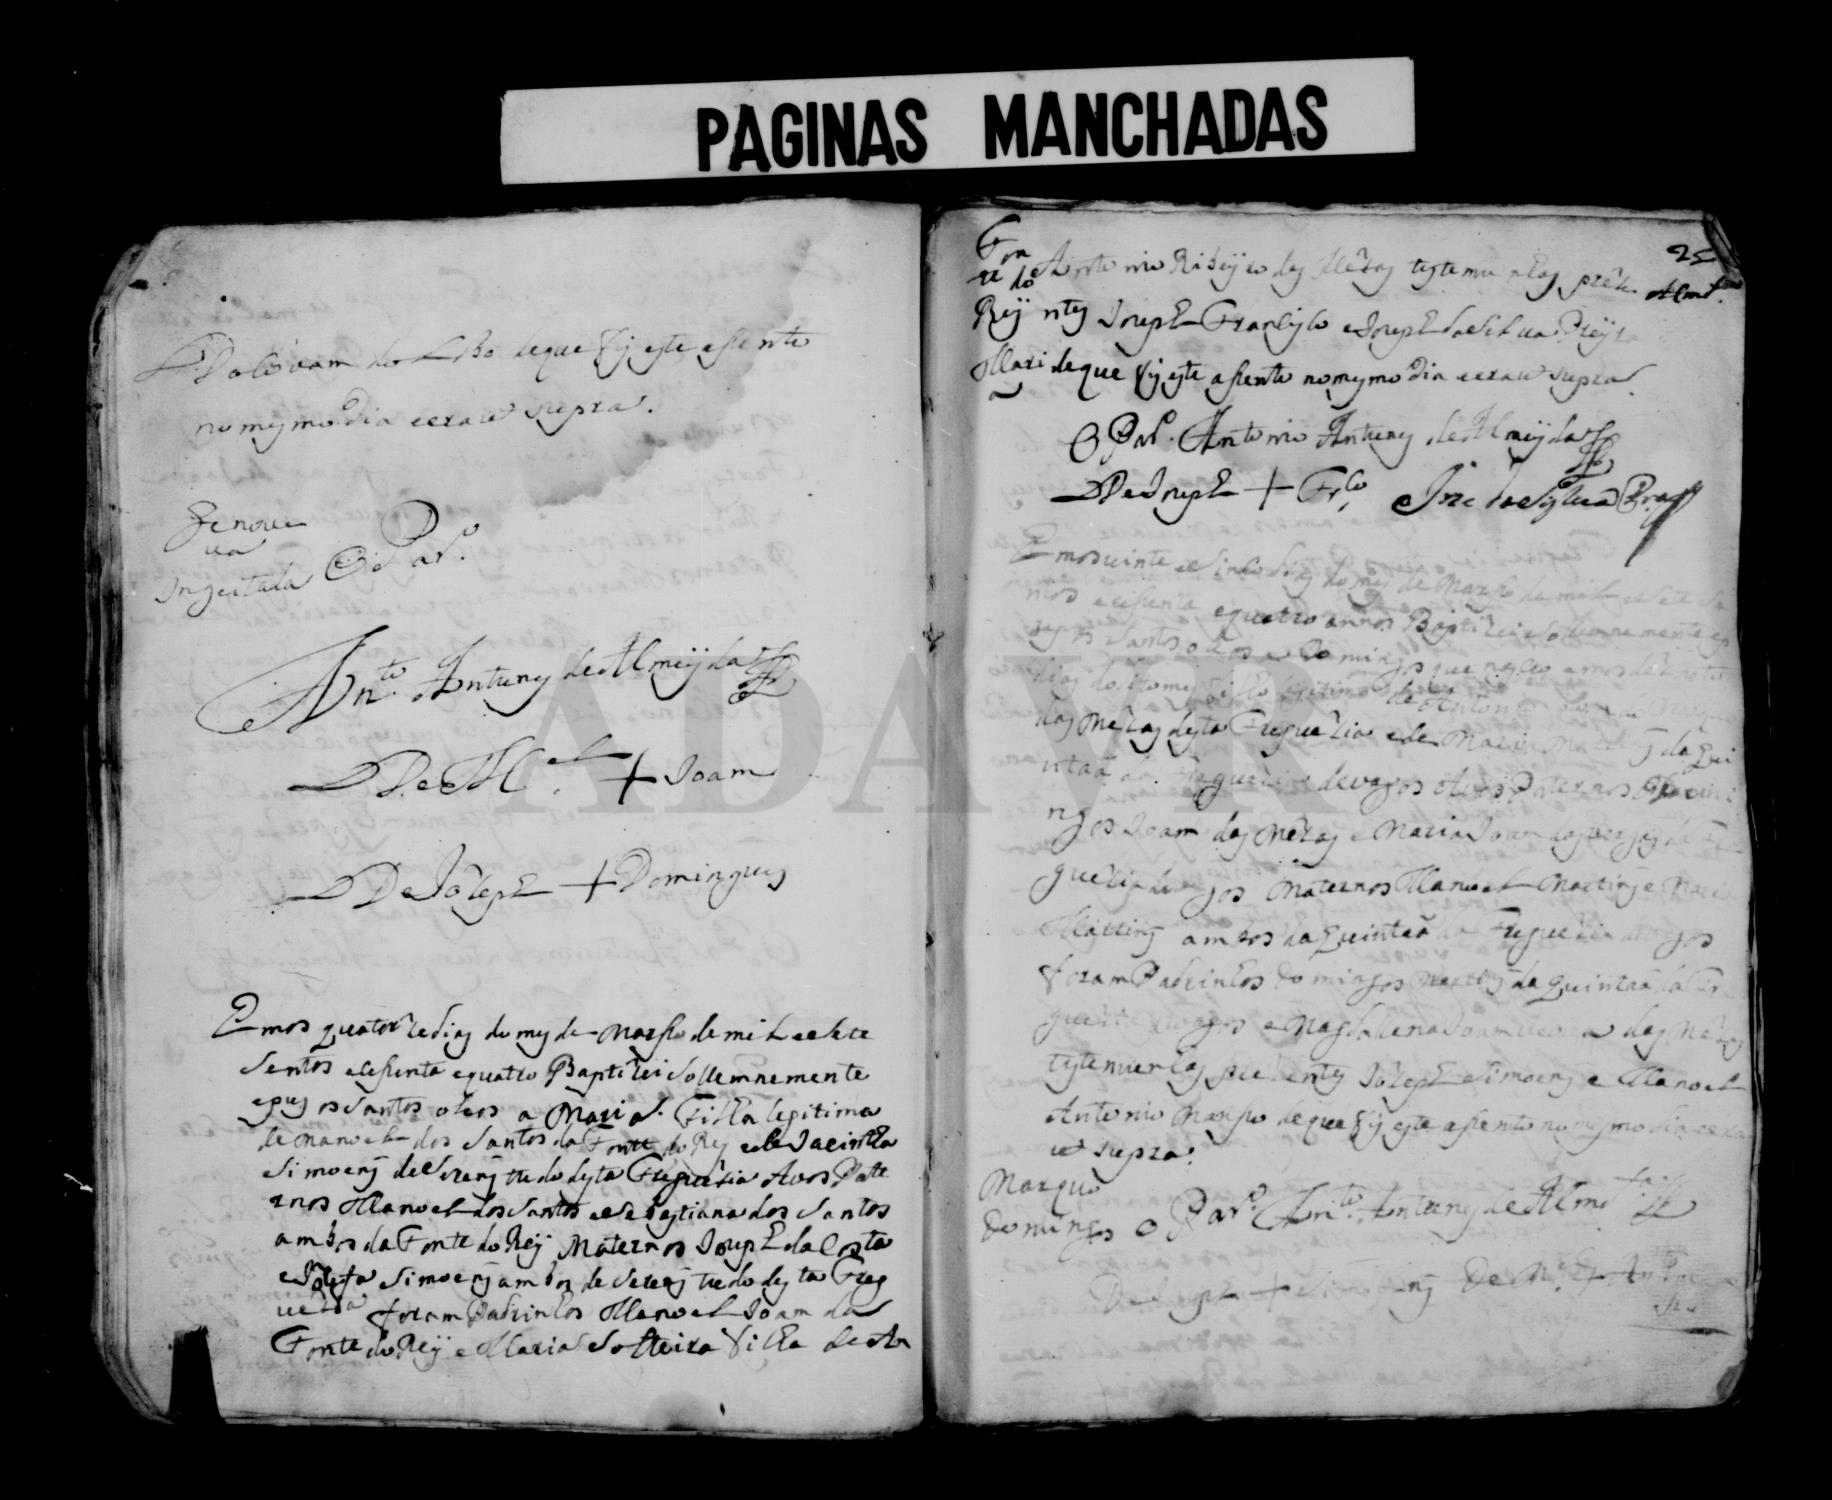 PAGINAS MANCHADAS
do Lobo deque fis este asento
no mesmo dia e era ut supra.
Genove
va
Ingeitada O Par.
Ant.º Antunes de Almeyda
De M.el + Joam
De Jozeph + Domingues
Em os quatorze dias do mes de Marso de mil e sete
sentos e sesenta e quatro Baptizei sollemnemente
e pus os santos oleos a Maria. Filha legitima
de Manoel dos Santos da Fonte do Rey e de Jacintha
Simoens de desta Freguezia Avos Pate
rnos Manoel dos Santos e Sebastiana dos Santos
ambos da Fonte do Reÿ Maternos Joseph da Costa
e Jozefa Simoens ambos de desta Freg
uezia foram Padrinhos Manoel Joam da
Fonte do Reÿ e Maria Solteira filha de An
25
Fon
te do
Reÿ
Mari
a
Antonio Ribeÿro das Mezas testemunhas prêze Almd.
ntes Joseph Francisco e Joseph da Silva
deque fis este asento no mesmo dia e era ut supra
O Par. Antonio Antunes de Almeÿda
De Joseph + Fr.co Joze da Sylva
Em os vinte e sinco dias do mes de Marso de mil e sete se
ntos e sesenta e quatro annos Baptizei solemnemente e p
us os santos oleos a Domingos que nasceo
dias do dito mes filho legitimo de Antonio
das Mezas desta Freguezia e de Maria Martins da Qui
ntaã da Freguezia de Vagos Avos Paternos Domi
ngos Joam das Mezas e Maria Joam da Fre
guezia de Vagos Maternos Manoel Martins e Maria
Martins ambos da Quintaã da Freguezia de Vagos
foram Padrinhos Domingos Martins da Quintaã da Fre
guezia de Vagos e Magdalena Joam das Mezas
testemunhas prezentes Jozeph Simoens e Manoel
Antonio Marso deque fis este asento no mesmo dia e era
ut supra.
Domingos O Par. Ant.º Antunes de Almd.ª
De Joseph + Simoens De M.el + Antonio
ADAVR